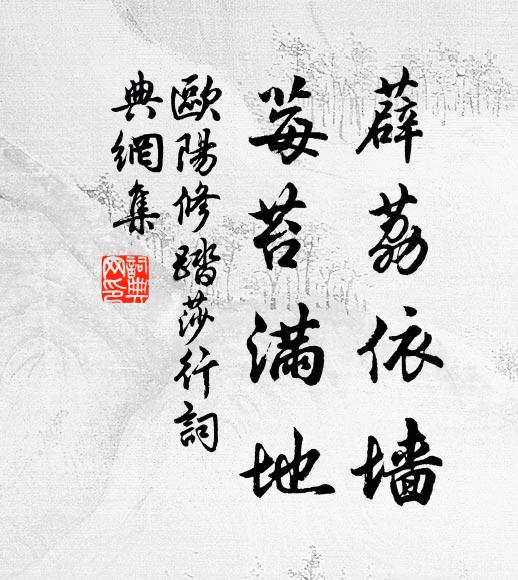 薜荔依墙
莓苔满地
歐陽修踏莎行詞
典網集
詞典網印